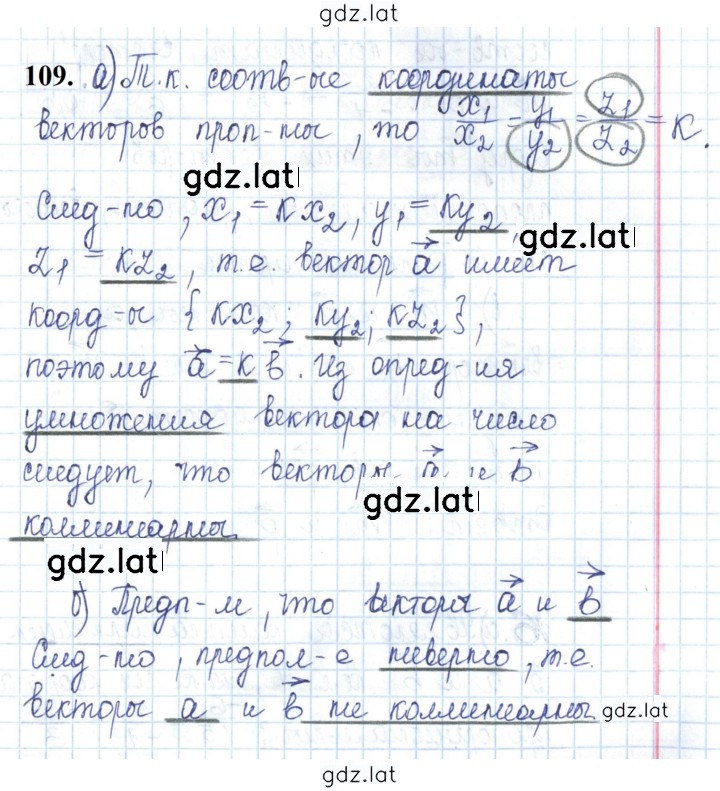 gdz.lat
109. а) Т.к. соотв-ые координаты
векторов проп-ны, то x₁/x₂ = y₁/y₂ = z₁/z₂ = к.
gdz.lat
След-но, x₁ = кx₂, y₁ = кy₂,
gdz.lat
z₁ = кz₂, т.е. вектор a⃗ имеет
коорд-ы {кx₂; кy₂; кz₂},
поэтому a⃗ = к b⃗. Из опред-ия
умножения вектора на число
следует, что векторы a⃗ и b⃗
gdz.lat
коллинеарны
gdz.lat
б) Предп-м, что векторы a⃗ и b⃗
След-но, предпол-е неверно, т.е.
векторы a и b⃗ не коллинеарны
gdz.lat
gdz.lat